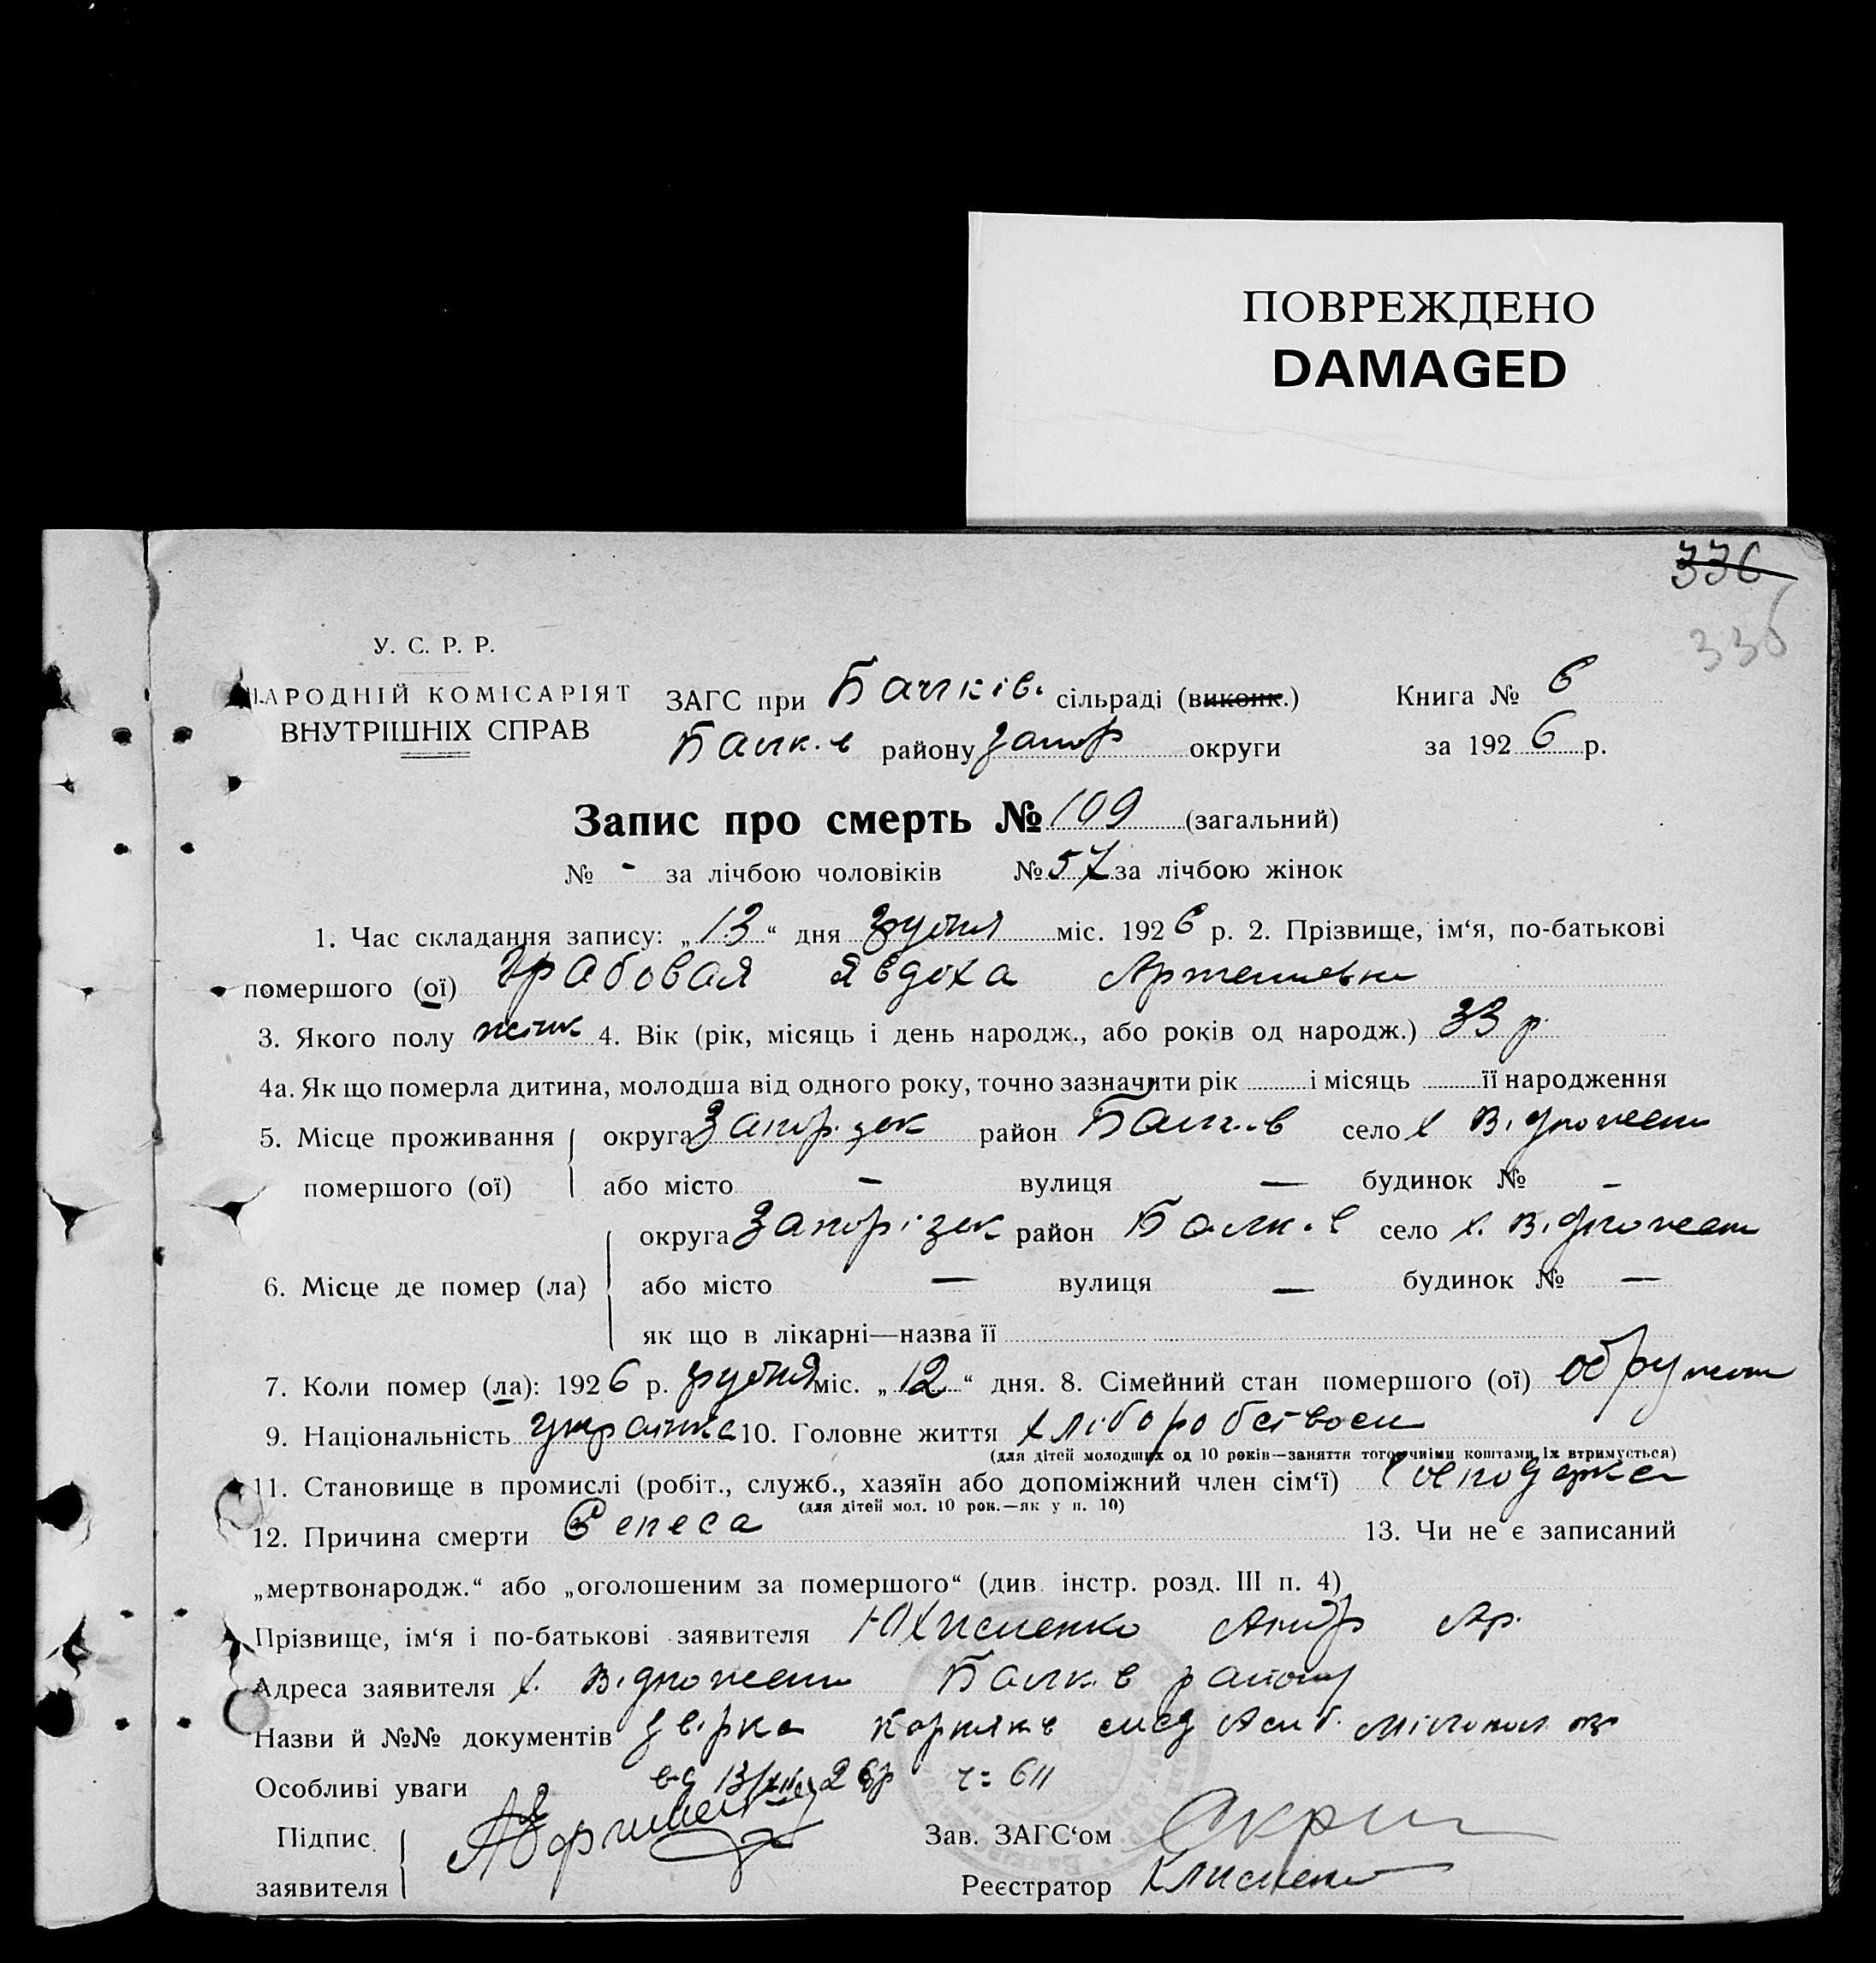 ПОВРЕЖДЕНО
DAMAGED
336
336
У. С. Р. Р.
НАРОДНІЙ КОМІСАРІЯТ
ВНУТРІШНІХ СПРАВ
ЗАГС при Балків. сільраді (виконк.)
Балк.в району Запор округи
Книга № 6
за 1926 р.
Запис про смерть № 109 (загальний)
№ - за лічбою чоловіків № 57 за лічбою жінок
1. Час складання запису: „13“ дня грудня міс. 1926 р. 2. Прізвище, ім‘я, по-батькові
помершого (ої) Грабовая Явдоха Артемівна
3. Якого полу жінк 4. Вік (рік, місяць і день народж., або років од народж.) 33 р.
4а. Як що померла дитина, молодша від одного року, точно зазначити рік і місяць її народження
5. Місце проживання округа Запорізьк район Балк.в село х.
помершого (ої) або місто — вулиця — будинок № -
округа Запорізьк район Балк.в село х.
6. Місце де помер (ла) або місто — вулиця — будинок № —
як що в лікарні—назва її
7. Коли помер (ла): 1926 р. грудня міс. „12“ дня. 8. Сімейний стан помершого (ої)
9. Національність 10. Головне життя хліборобством
(для дітей молодших од 10 років—заняття того, чиїми коштами їх втримується)
11. Становище в промислі (робіт., служб., хазяїн або допоміжний член сім‘ї) господарка
(для дітей мол. 10 рок.—як у п. 10)
12. Причина смерти Сепсса 13. Чи не є записаний
„мертвонародж.“ або „оголошеним за помершого“ (див. інстр. розд. III п. 4)
Прізвище, ім‘я і по-батькові заявителя
Адреса заявителя х. Балк.в району
Назви й №№ документів
Особливі уваги від 13/XII 26р ч= 611
Підпис
заявителя
Зав. ЗАГС‘ом
Реєстратор